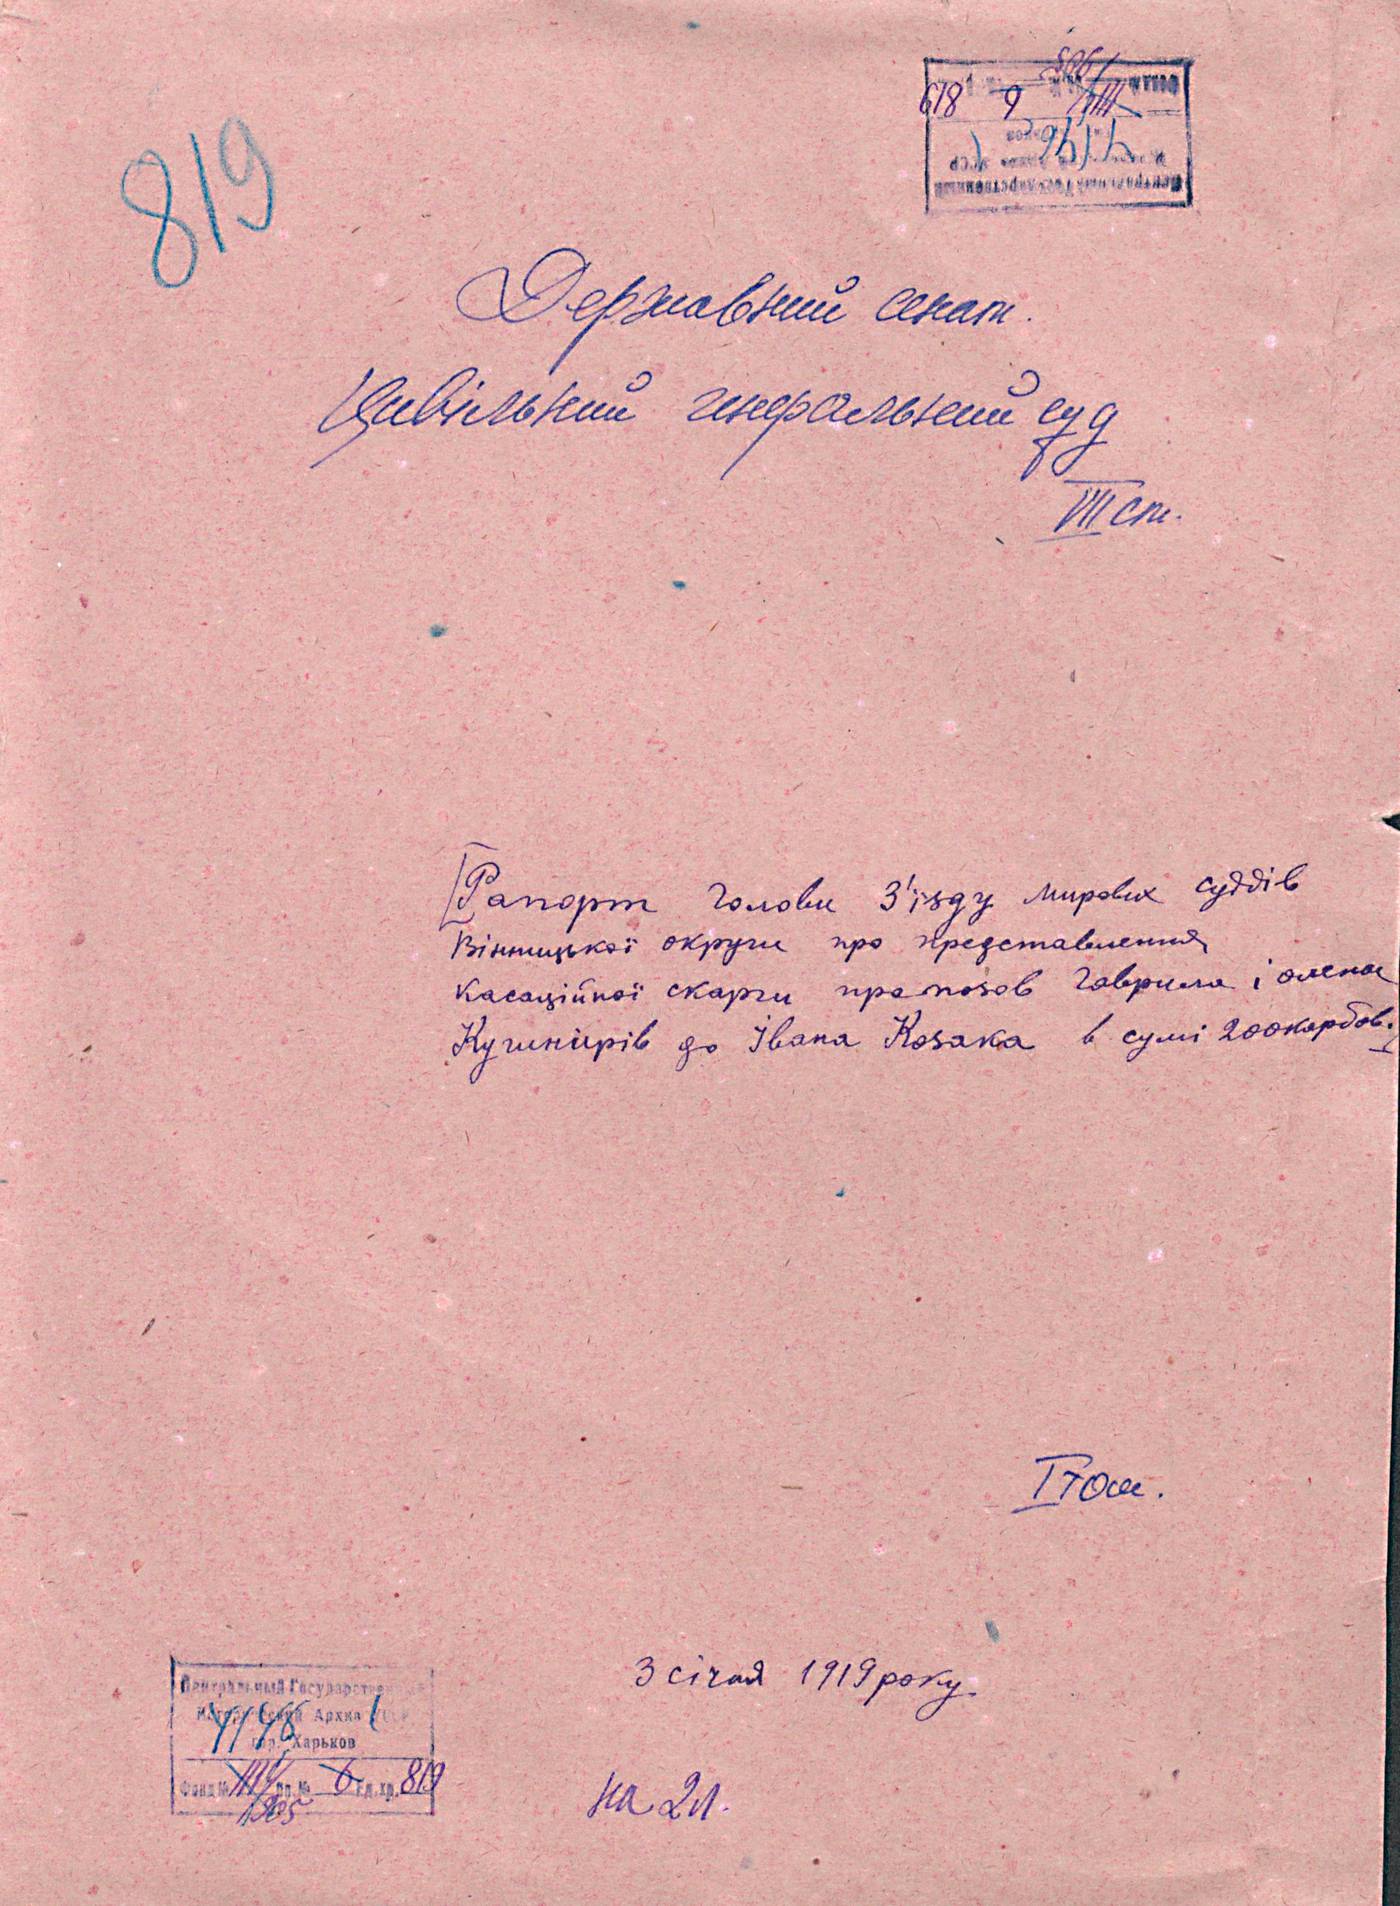 819
Державний сенат.
Цивільний генеральний суд
VIII ст.
[Рапорт Голови З'їзду мирових суддів
Вінницької округи про представлення
касаційної скарги про позов Гаврила і Олени
Кушнірів до Івана Козака в сумі 200 карбов.]
I том.
3 січня 1919 року
на 2 л.
Центральный Государственный
Исторический Архив УССР
гор. Харьков
4146 1
Фонд № оп. № 6 Ед. хр. 819